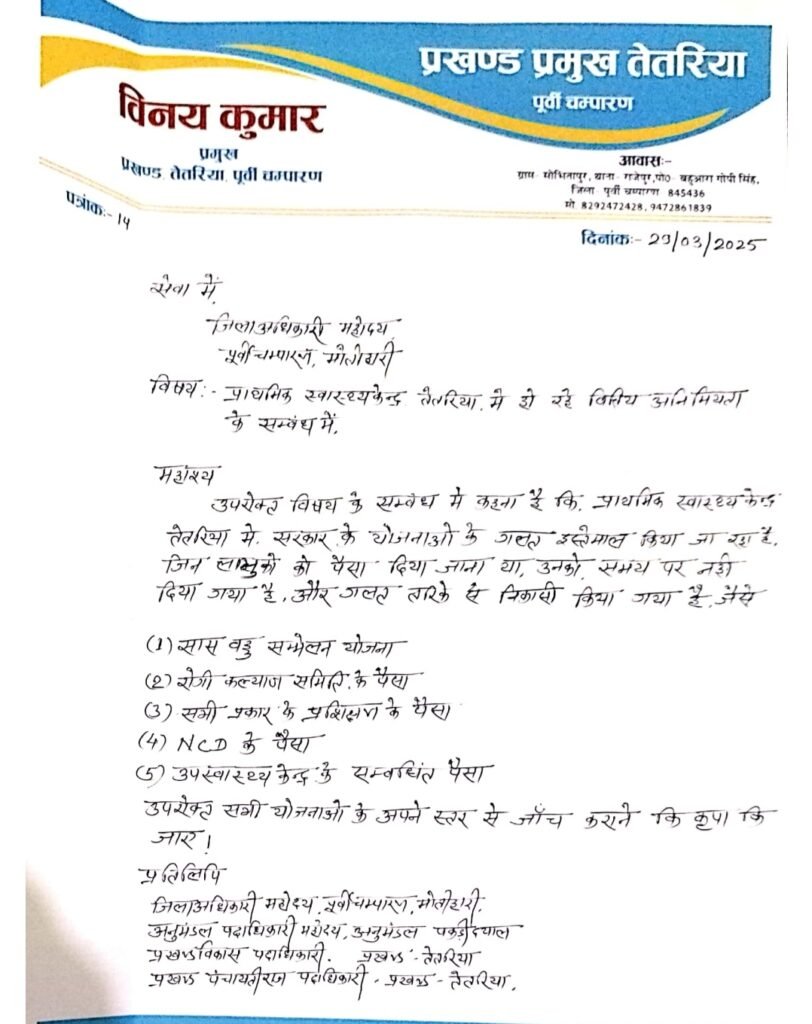 प्रखण्ड प्रमुख तेतरिया
पूर्वी चम्पारण
विनय कुमार
प्रमुख
प्रखण्ड, तेतरिया, पूर्वी चम्पारण
आवासः-
ग्राम- मोभिनापुर, थाना- राजेपुर,पो0- बहुआरा गोपी सिंह,
जिला- पूर्वी चम्पारण 845436
मो 8292472428, 9472861839
पत्रांकः- 14
दिनांकः- 29/03/2025
सेवा में,
जिलाअधिकारी महोदय,
पूर्वी चम्पारण, मोतीहारी
विषय:- प्राथमिक स्वास्थ्य केन्द्र तेतरिया, मे हो रहे वित्तिय अनिमियता
के सम्बंध में,
महाश्य
उपरोक्त विषय के सम्बंध मे कहना है कि, प्राथमिक स्वास्थ्य केन्द्र
तेतरिया मे, सरकार के योजनाओ के गलत इस्तेमाल किया जा रहा है,
जिन लाभुको को पैसा दिया जाना था, उनको, समय पर नही
दिया गया है, और गलत तरिके से निकासी किया गया है, जैसे
(1) सास बहु सम्मेलन योजना
(2) रोगी कल्याण समिति, के पैसा
(3) सभी प्रकार के प्रशिक्षण के पैसा
(4) NCD के पैसा
(5) उपस्वास्थ्य केन्द्र के सम्बधित पैसा
उपरोक्त सभी योजनाओ के अपने स्तर से जाँच कराने कि कृपा कि
जाए।
प्रतिलिपि
जिलाअधिकारी महोदय, पूर्वी चम्पारण, मोतीहारी,
अनुमंडल पदाधिकारी महोदय, अनुमंडल पकड़ीदयाल
प्रखण्ड विकास पदाधिकारी, प्रखण्ड - तेतरिया
प्रखण्ड पंचायतीराज पदाधिकारी - प्रखण्ड - तेतरिया,